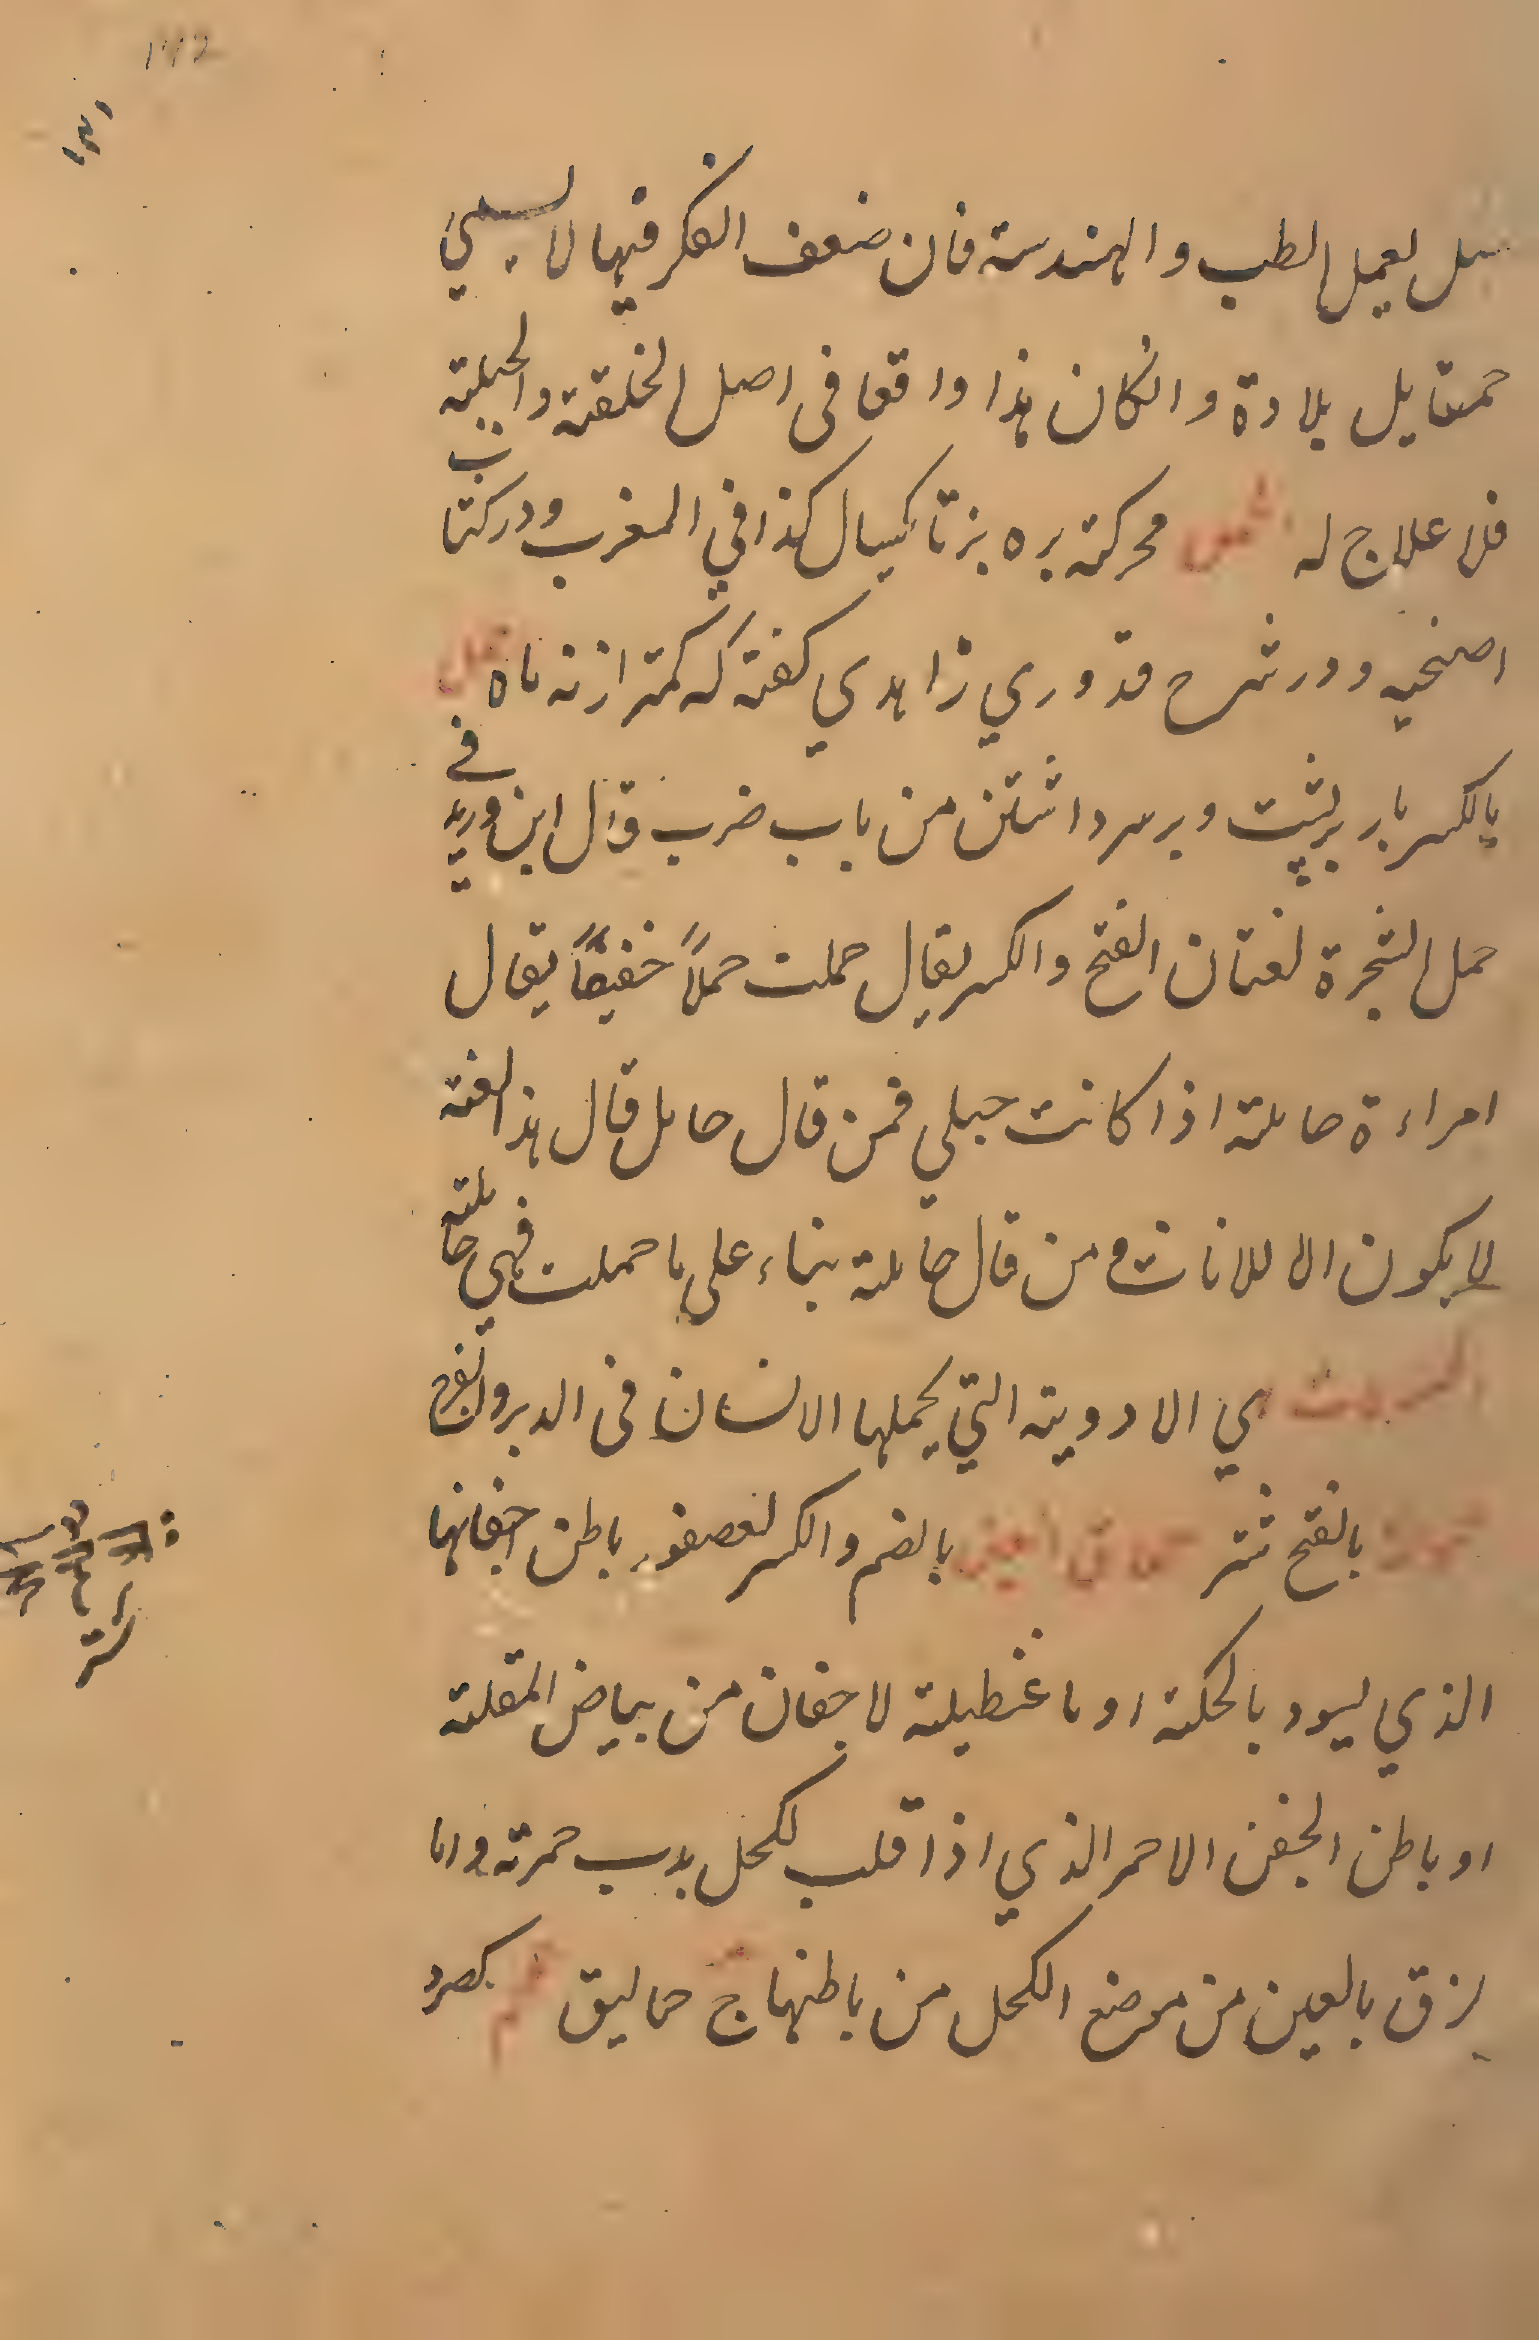 لعمل الطب والهندسة فان ضعف الفكر فيها لا يسمي
حمقا بل بلادة وانكان هذا واقعا فى اصل الخلقة والجبلة
فلا علاج له محركة بره بز تا يكسال كذا في المغرب ودر كتاب
اضحيه ودر شرح قدوري زاهدي كفته كه كمتر از نه ماه حمل
بالكسر بار بر پشت وبر سر داشتن من باب ضرب قال ابن دريد في
حمل الشجرة لغتان الفتح والكسر يقال حملت حملاً خفيفاً يقال
امراءة حاملة اذا كانت حبلي فمن قال حامل قال هذا لغة
لا يكون الا للاناث ومن قال حاملة بناء علي ما حملت فهي حاملة
هي الادوية التي يحملها الانسان فى الدبر والفرج
بالفتح شتر حملاق العين بالضم والكسر لعصفور باطن اجفانها
الذي يسود بالكحلة او ما غطيلة لاجفان من بياض المقلة
او باطن الجفن الاحمر الذي اذا قلب للكحل بدت حمرته واما
لزق بالعين من موضع الكحل من باطنها ج حماليق كصرد